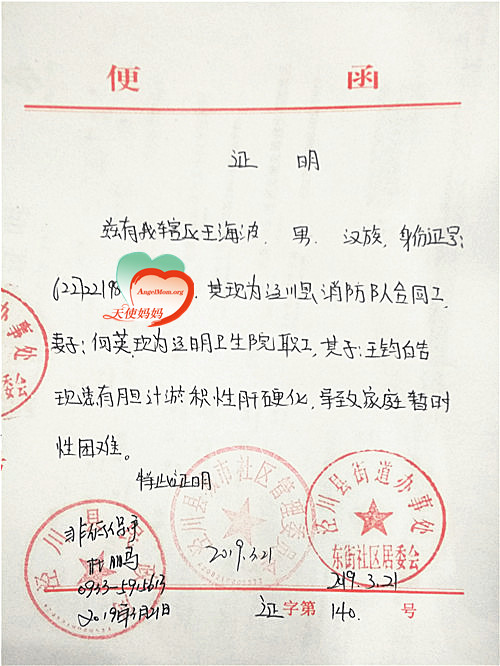 便 函
证 明
兹有我辖区王海波, 男, 汉族, 身份证号:
622722198 , 其现为泾川县消防队合同工,
AngelMom.org
天使妈妈
妻子: 何英, 现为 明卫生院职工, 其子: 王钧皓
现患有胆汁淤积性肝硬化, 导致家庭暂时
性困难。
特此证明
办事处
居委会
泾川县城市社区管理委员会
2019.3.21
泾川县街道办事处
东街社区居委会
219.3.21
泾川县
非低保户
0933-5915613
2019年3月21日
证字第 140. 号